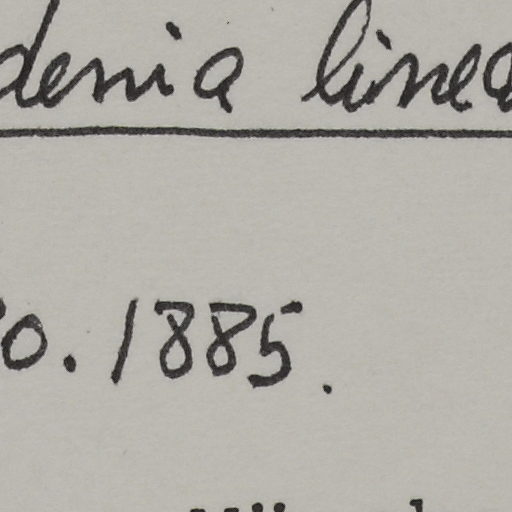 denia linea
o. 1885.